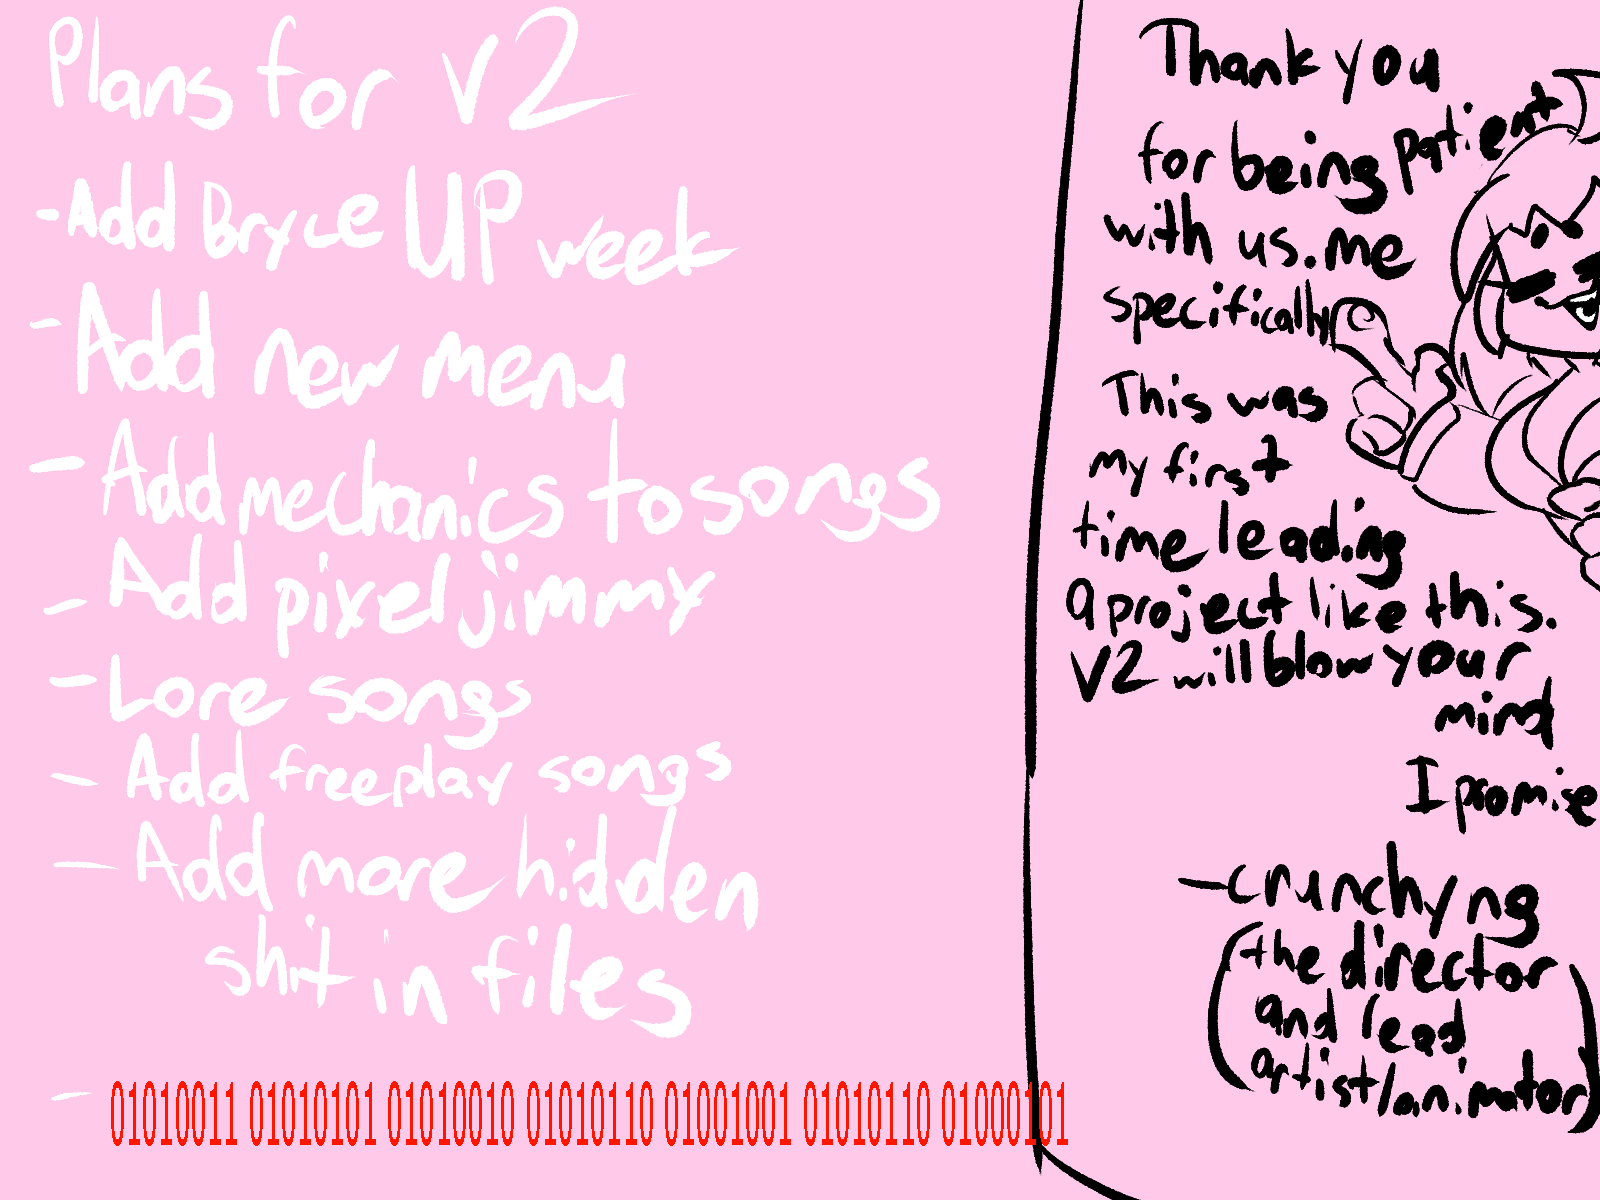 Plans for v2
-Add Bryce UP week
- Add new menu
- Add mechanics to songs
- Add pixel jimmy
- Lore songs
- Add freeplay songs
- Add more hidden
shit in files
- 01010011 01010101 01010010 01010110 01001001 01010110 01000101
Thank you
for being patient
with us. me
specifically
This was
my first
time leading
a project like this.
V2 will blow your
mind
I promise
-crunchyng
(the director
and lead
artist/animator)